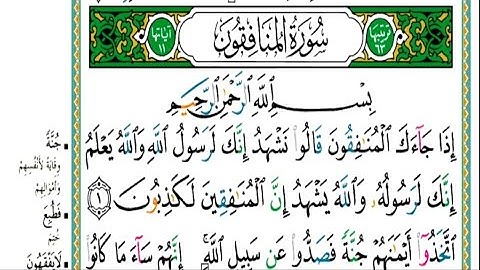 ترتيبها ٦٣
سُورَةُ الْمُنَافِقُونَ
آياتها ١١
بِسْمِ اللَّهِ الرَّحْمَٰنِ الرَّحِيمِ
إِذَا جَآءَكَ ٱلْمُنَٰفِقُونَ قَالُوا۟ نَشْهَدُ إِنَّكَ لَرَسُولُ ٱللَّهِ وَٱللَّهُ يَعْلَمُ
إِنَّكَ لَرَسُولُهُۥ وَٱللَّهُ يَشْهَدُ إِنَّ ٱلْمُنَٰفِقِينَ لَكَٰذِبُونَ ١
ٱتَّخَذُوٓا۟ أَيْمَٰنَهُمْ جُنَّةً فَصَدُّوا۟ عَن سَبِيلِ ٱللَّهِ ۚ إِنَّهُمْ سَآءَ مَا كَانُوا۟
جُنَّةً
وِقَايَةً لأَنْفُسِهِمْ
وَأَمْوَالِهِمْ
فَطُبِعَ
خُتِمَ
لَا يَفْقَهُونَ